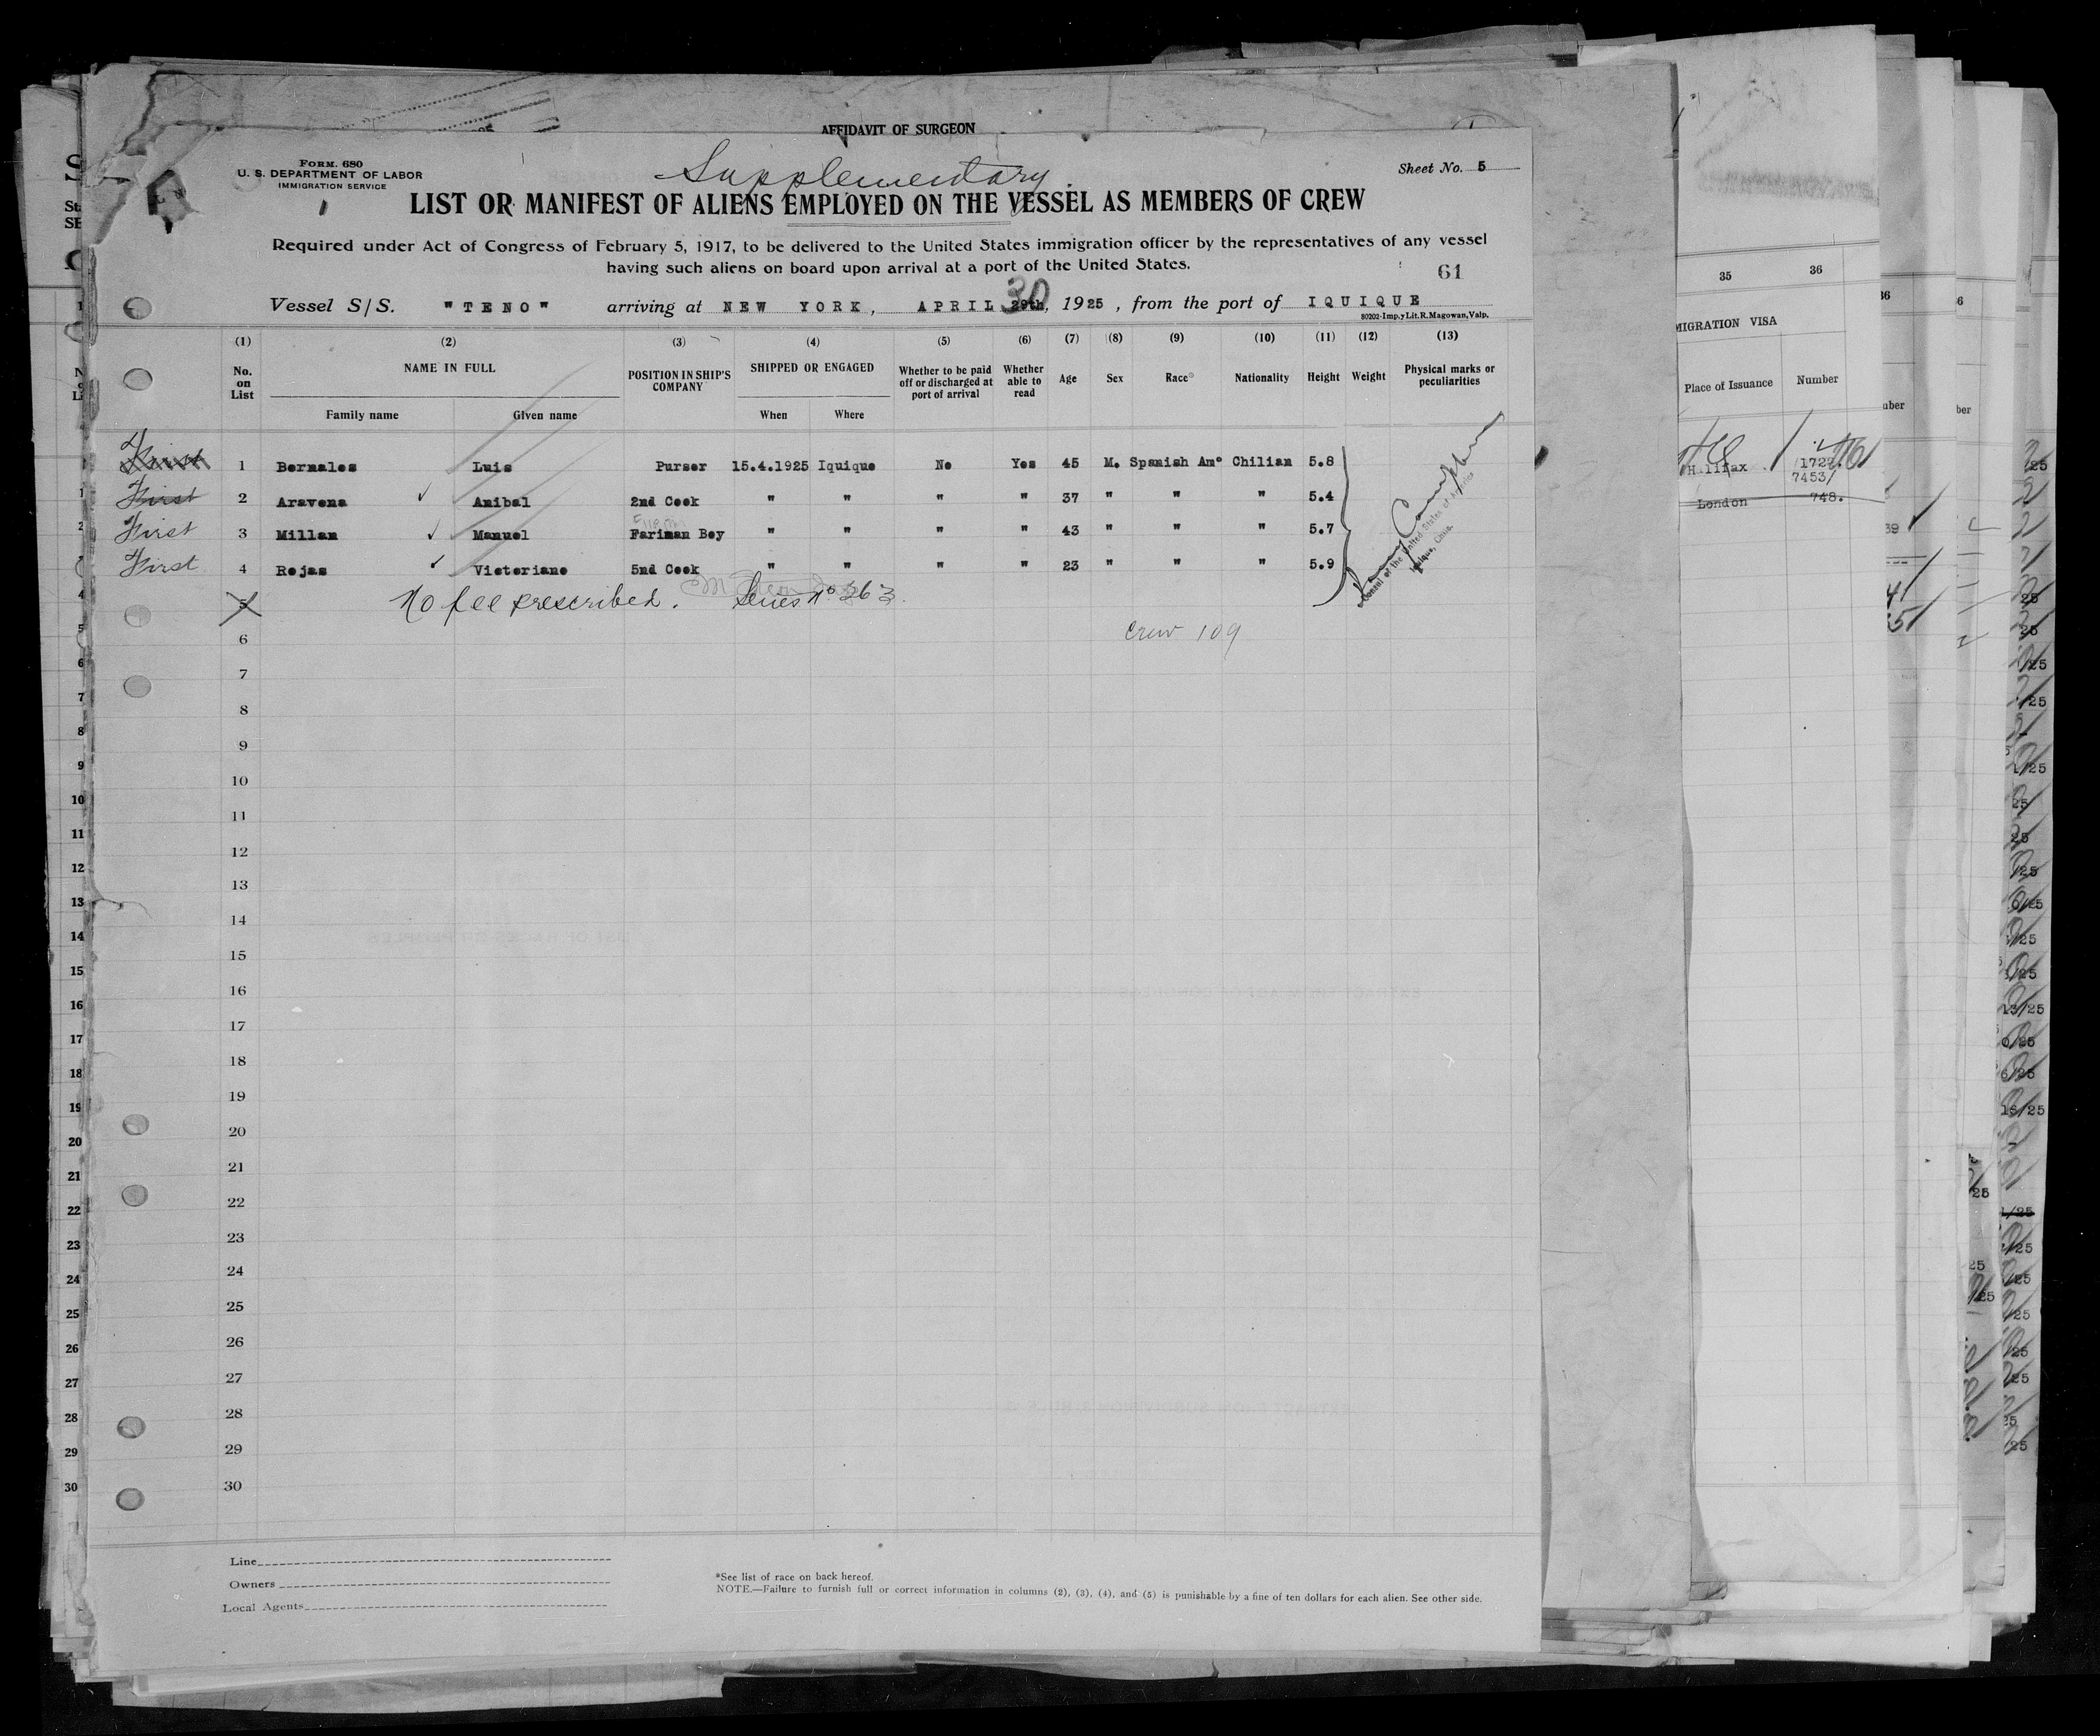 AFFIDAVIT OF SURGEON
FORM. 680
U. S. DEPARTMENT OF LABOR
IMMIGRATION SERVICE
Supplementary
Sheet No. 5
LIST OR MANIFEST OF ALIENS EMPLOYED ON THE VESSEL AS MEMBERS OF CREW
Required under Act of Congress of February 5, 1917, to be delivered to the United States immigration officer by the representatives of any vessel
having such aliens on board upon arrival at a port of the United States.
61
Vessel S/S. "TENO" arriving at NEW YORK, APRIL 29th, 30 1925, from the port of IQUIQUE
80202-Imp.y Lit.R.Magowan,Valp.
(1) (2) (3) (4) (5) (6) (7) (8) (9) (10) (11) (12) (13)
No. on List NAME IN FULL POSITION IN SHIP'S COMPANY SHIPPED OR ENGAGED Whether to be paid off or discharged at port of arrival Whether able to read Age Sex Race* Nationality Height Weight Physical marks or peculiarities
Family name Given name When Where
First 1 Bernales Luis Purser 15.4.1925 Iquique No Yes 45 M. Spanish Am° Chilian 5.8
First 2 Aravena Anibal 2nd Cook " " " " 37 " " " 5.4
First 3 Millan Manuel Fariman Boy " " " " 43 " " " 5.7
First 4 Rojas Victoriano 5nd Cook " " " " 23 " " " 5.9
Consul of the United States of America
Iquique, Chile.
5 No fee prescribed. Series No 263.
6 Crew 109
7
8
9
10
11
12
13
14
15
16
17
18
19
20
21
22
23
24
25
26
27
28
29
30
Line
Owners
Local Agents
*See list of race on back hereof.
NOTE.—Failure to furnish full or correct information in columns (2), (3), (4), and (5) is punishable by a fine of ten dollars for each alien. See other side.
35 36
MIGRATION VISA
Place of Issuance Number
Halifax
7453/
London 748.